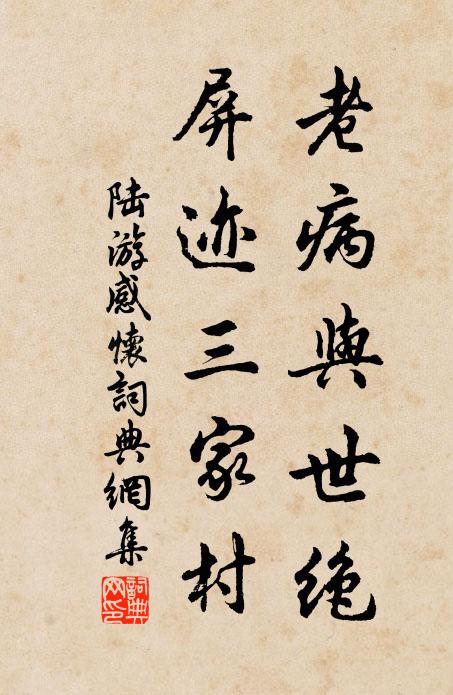 老病與世绝
屏迹三家村
陆游感懷詞典網集